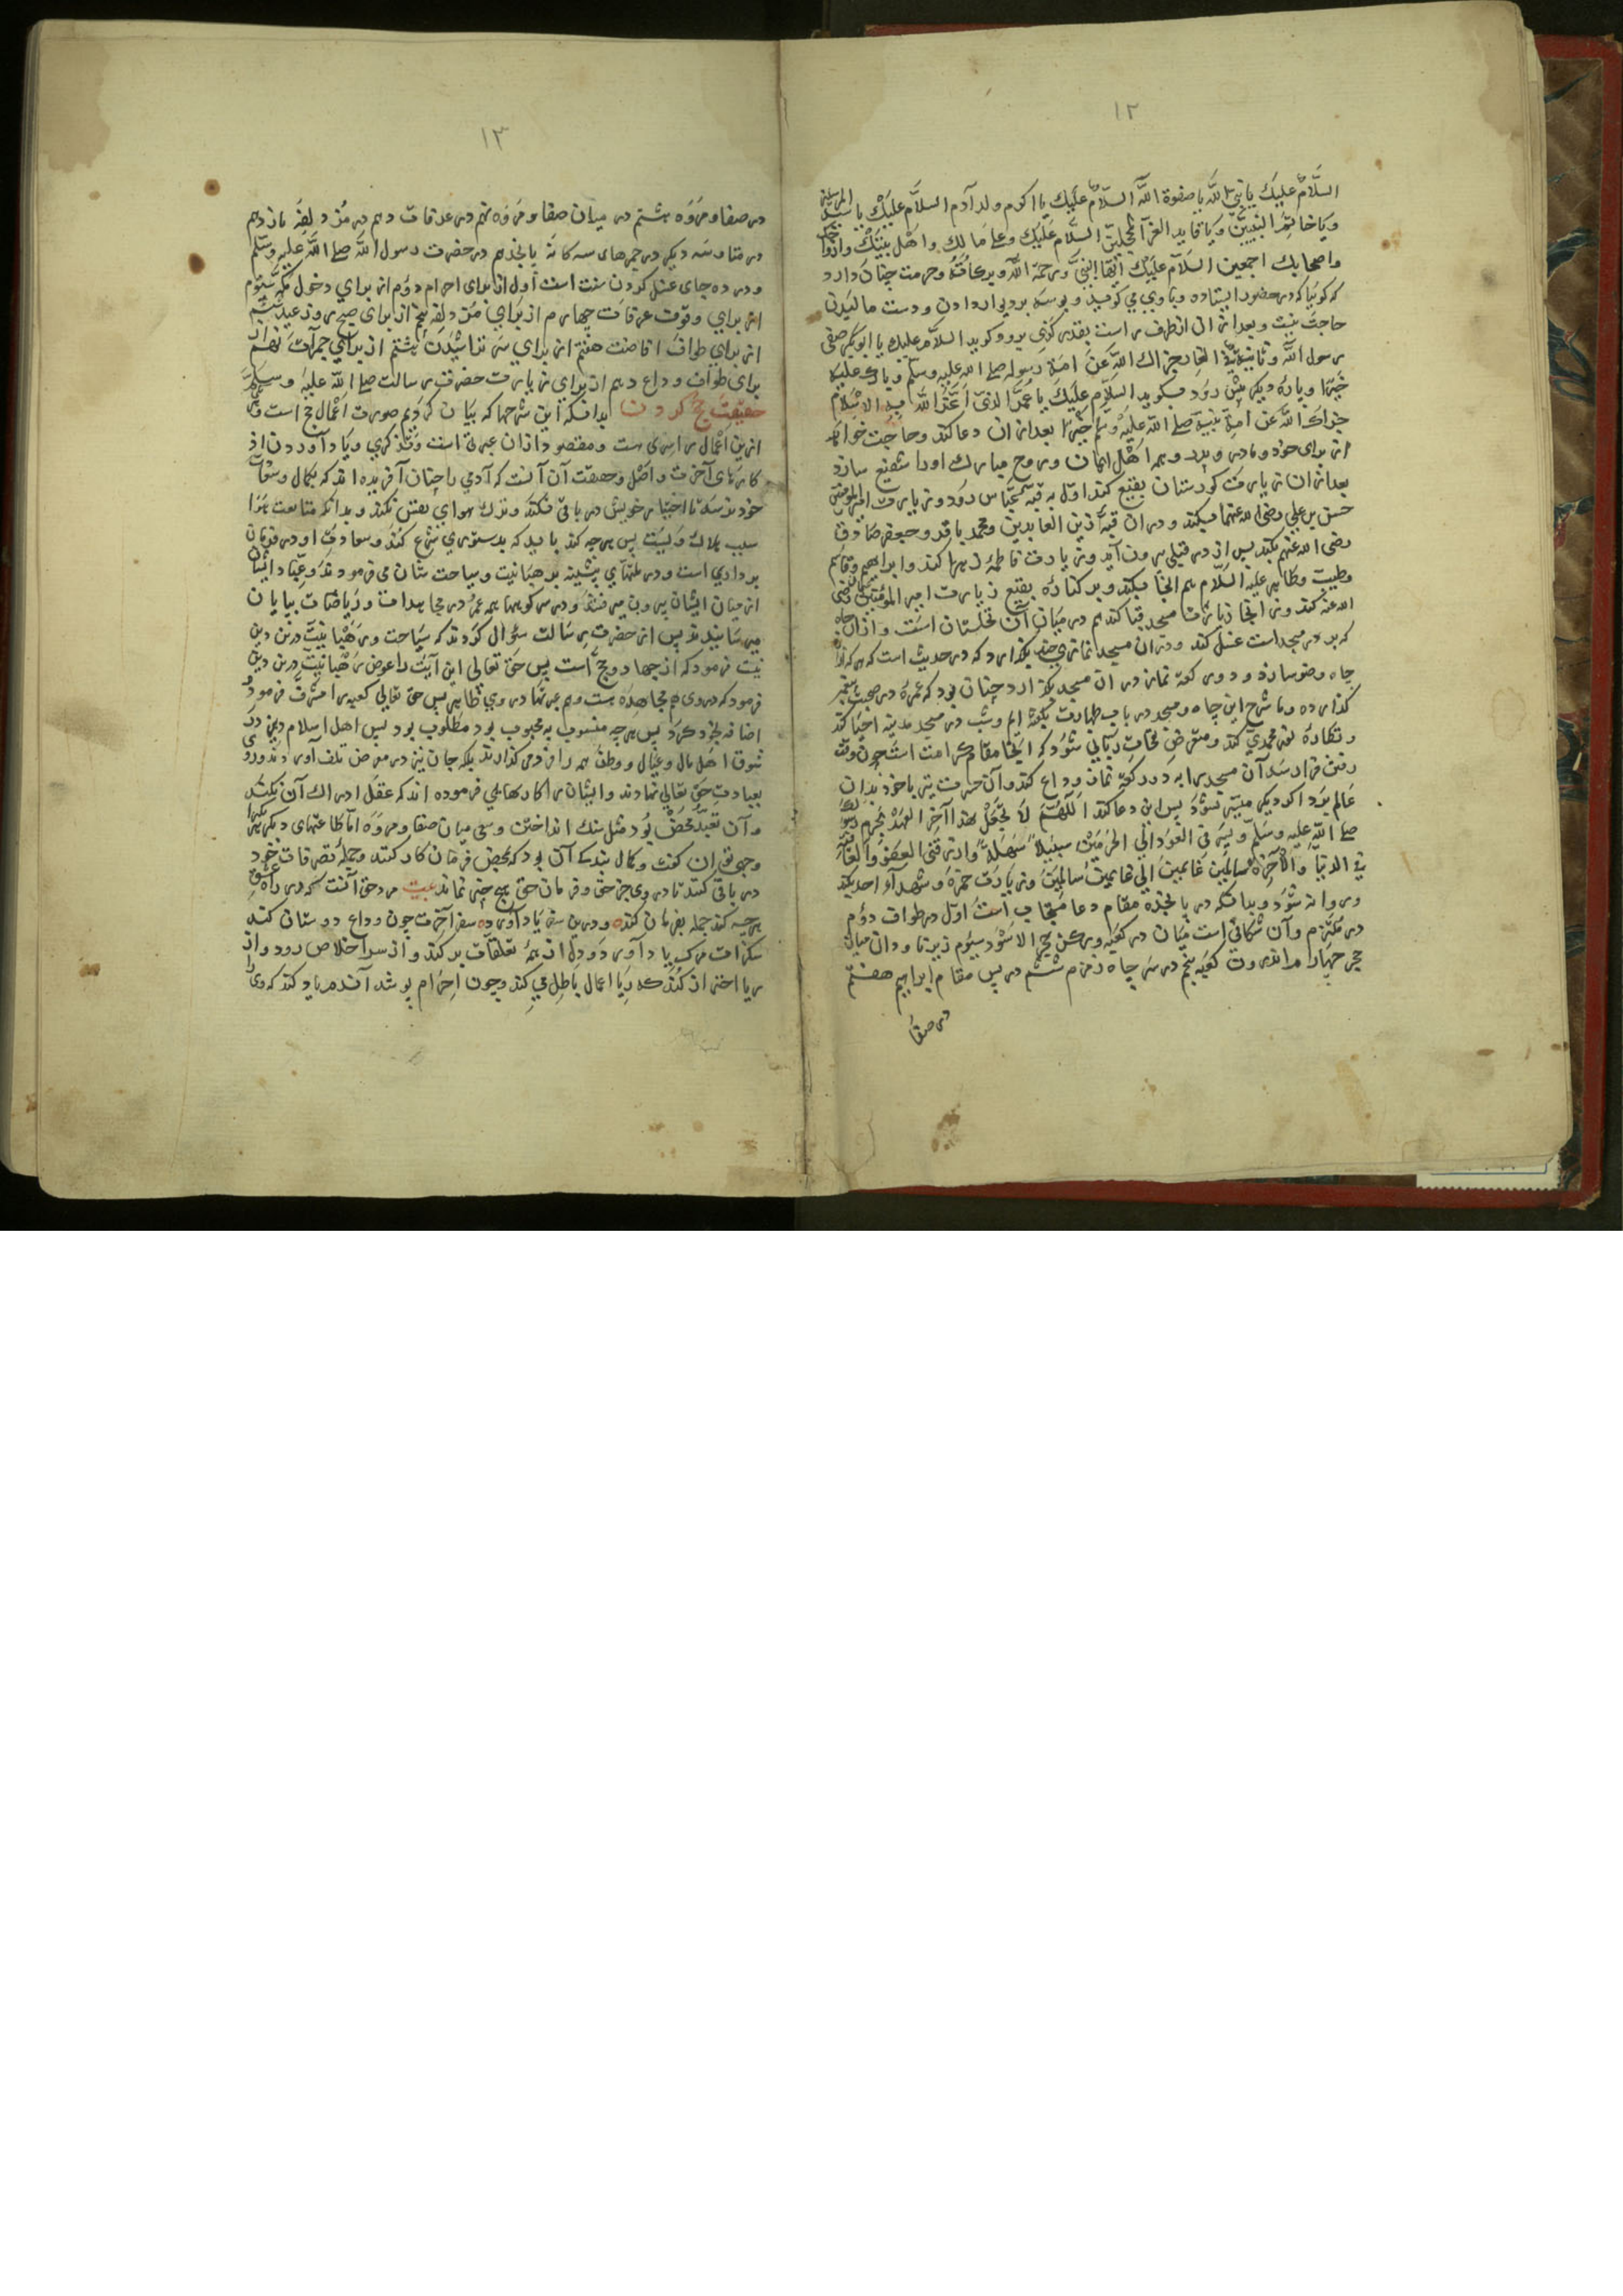 ١٢
السلام عليك يا نبي الله يا صفوة الله السلام عليك يا اكرم ولد آدم السلام عليك يا سيد المرسلين
ويا خاتم النبيين ويا قايد الغر المحجلين السلام عليك وعلى مالك واهل بيتك وازواجك
واصحابك اجمعين السلام عليك ايها النبي ورحمة الله وبركاته وحرمت چنان دارد
كه كوئيا كه در حضور ايستاده وبا وي مي كويد وبوسه بر ديوار دادن ودست ماليدن
حاجت نيست وبعد از ان از طرف راست بقدر كزي برود وكويد السلام عليك يا ابو بكر صفي
رسول الله وثانيه في الغار جزاك الله عن امة رسوله صلى الله عليه وسلم
خيرا وپاره ديكر پيش رود وبكويد السلام عليك يا عمر الذي اعز الله به الاسلام
جزاك الله عن امة نبيه صلى الله عليه وسلم خيرا بعد از ان دعا كند وحاجت خواهد
از براى خود ومادر وپدر وهمه اهل ايمان وروح مبارك او را شفيع سازد
بعد از ان زيارت كورستان بقيع كند اول به قبه عباس رود وزيارت امير المؤمنين
حسن بن علي رضي الله عنهما ميكند ودر ان قبه زين العابدين ومحمد باقر وجعفر صادق
رضى الله عنهم بكند پس از در قبلي بيرون آيد وزيارت فاطمه زهرا كند وابراهيم وقاسم
وطيب وطاهر عليه السلام هم انجا ميكند وبر كناره بقيع زيارت امير المؤمنين عثمان رضى
الله عنه كند واز انجا زيارت مسجد قبا كند هم در ميان آن نخلستان است واز ان چاه
كه بر در مسجد است غسل كند ودر ان مسجد نمازي چند بكذارد كه در حديث است كه هر كه از ان
چاه وضو سازد ودو ركعت نماز در ان مسجد بكذارد چنان بود كه عمره در صحبت پيغمبر
كذارده وما شرح اين چاه ومسجد در باب طهارت بكفته ايم وشب در مسجد مدينه احيا كند
ونظاره نور محمدي كند ومتعرض نفحات رباني شود كه اينجا مقام كرامت است چون وقت
رفتن فرا رسد آن مسجد را به دو ركعت نماز وداع كند وآن حسرت نيز با خود بدان
عالم برد اكر ديكر ميسر نشود پس اين دعا كند اللهم لا تجعل هذا آخر العهد بحرم رسولك
صلى الله عليه وسلم ويسر لي العود الى الحرمين سبيلا سهلة وارزقني العفو والعافية
في الدنيا والآخرة سالمين غانمين الى اهالينا سالمين وزيارت حمزه وشهداء احد بكند
وروانه شود وبدانكه در پانجده مقام دعا مستجاب است اول در طواف دوم
در ملتزم وآن مكانى است ميان در كعبه وركن حجر الاسود سيوم زير ناودان ميان
حجر چهارم اندرون كعبه پنجم در سر چاه زمزم ششم در پس مقام ابراهيم هفتم
در صفا
١٣
در صفا ومروه هشتم در ميدان صفا ومروه نهم در عرفات دهم در مزدلفه يازدهم
در منا وسه ديكر در جمرهاى سه كانه پانجدهم در حضرت رسول الله صلى الله عليه وسلم
ودر ده جاى غسل كردن سنت است اول از براى احرام دوم از براي دخول مكه سيوم
از براي وقوف عرفات چهارم از براي مزدلفه پنجم از براى صبح روز عيد ششم
از براي طواف افاضت هفتم از براي سر تراشيدن هشتم از براي جمرات نهم از
براى طواف وداع دهم از براي زيارت حضرت رسالت صلى الله عليه وسلم
حقيقت حج كردن بدانكه اين شرحها كه بيان كرديم صورت اعمال حج است
ازين اعمال را سرى هست ومقصود از ان عبرتى است وتذكرى وياد آوردن از
كارهاى آخرت واصل وحقيقت آن آنست كه آدمي را چنان آفريده اند كه بكمال وسعادت
خود نرسد تا اختيار خويش در باقى نكند وترك هواي نفس نكند وبدانكه متابعت هوا
سبب هلاك ويست پس هر چه كند بايد كه بدستوري شرع كند وسعادت او در فرمان
برداري است ودر ملتهاى پيشينه رهبانيت وسياحت شان مي فرمودند وعباد ايشان
از ميان ايشان بيرون مي رفتند ودر سر كوهها همه عمر در مجاهدات ورياضات بپايان
مي رسانيدند پس از حضرت رسالت سؤال كردند كه سياحت ورهبانيت درين دين
نيست فرمود كه از جهاد وحج است پس حق تعالى اين امت را عوض رهبانيت درين دين
فرمود كه در وى هم مجاهده هست وهم عبرتها در وي ظاهر پس حق تعالي كعبه را مشرف فرمود
اضافه بخود كرد پس هر چه منسوب به محبوب بود مطلوب بود پس اهل اسلام در
شوق اهل مال وعيال ووطن همه را فرو مى كذارند بلكه جان نيز در معرض تلف آورده روى
بعبادت حق تعالى نهادند وايشان را كارهايي فرموده اند كه عقل ادراك آن نكند
وآن تعبد محض بود مثل سنك انداختن وسعى ميان صفا ومروه اما طاعتهاى ديكر را
وجهى توان كفت وكمال بندكى آن بود كه محض فرمان كار كنند وجمله تصرفات خود
در باقى كنند تا در وى جز حق وفرمان حق هيچ چيز نماند عبرت در حق آنست كه در راه حق
هر چه كند جمله بفرمان كند ودرين سفر ياد آورده سفر آخرت چون وداع دوستان كند
سكرات مرك ياد آورد ودل از همه تعلقات بركند واز سر اخلاص رود واز
ريا احتراز كند كه ريا اعمال باطل مي كند وچون احرام پوشد آندم ياد كند كه وى را